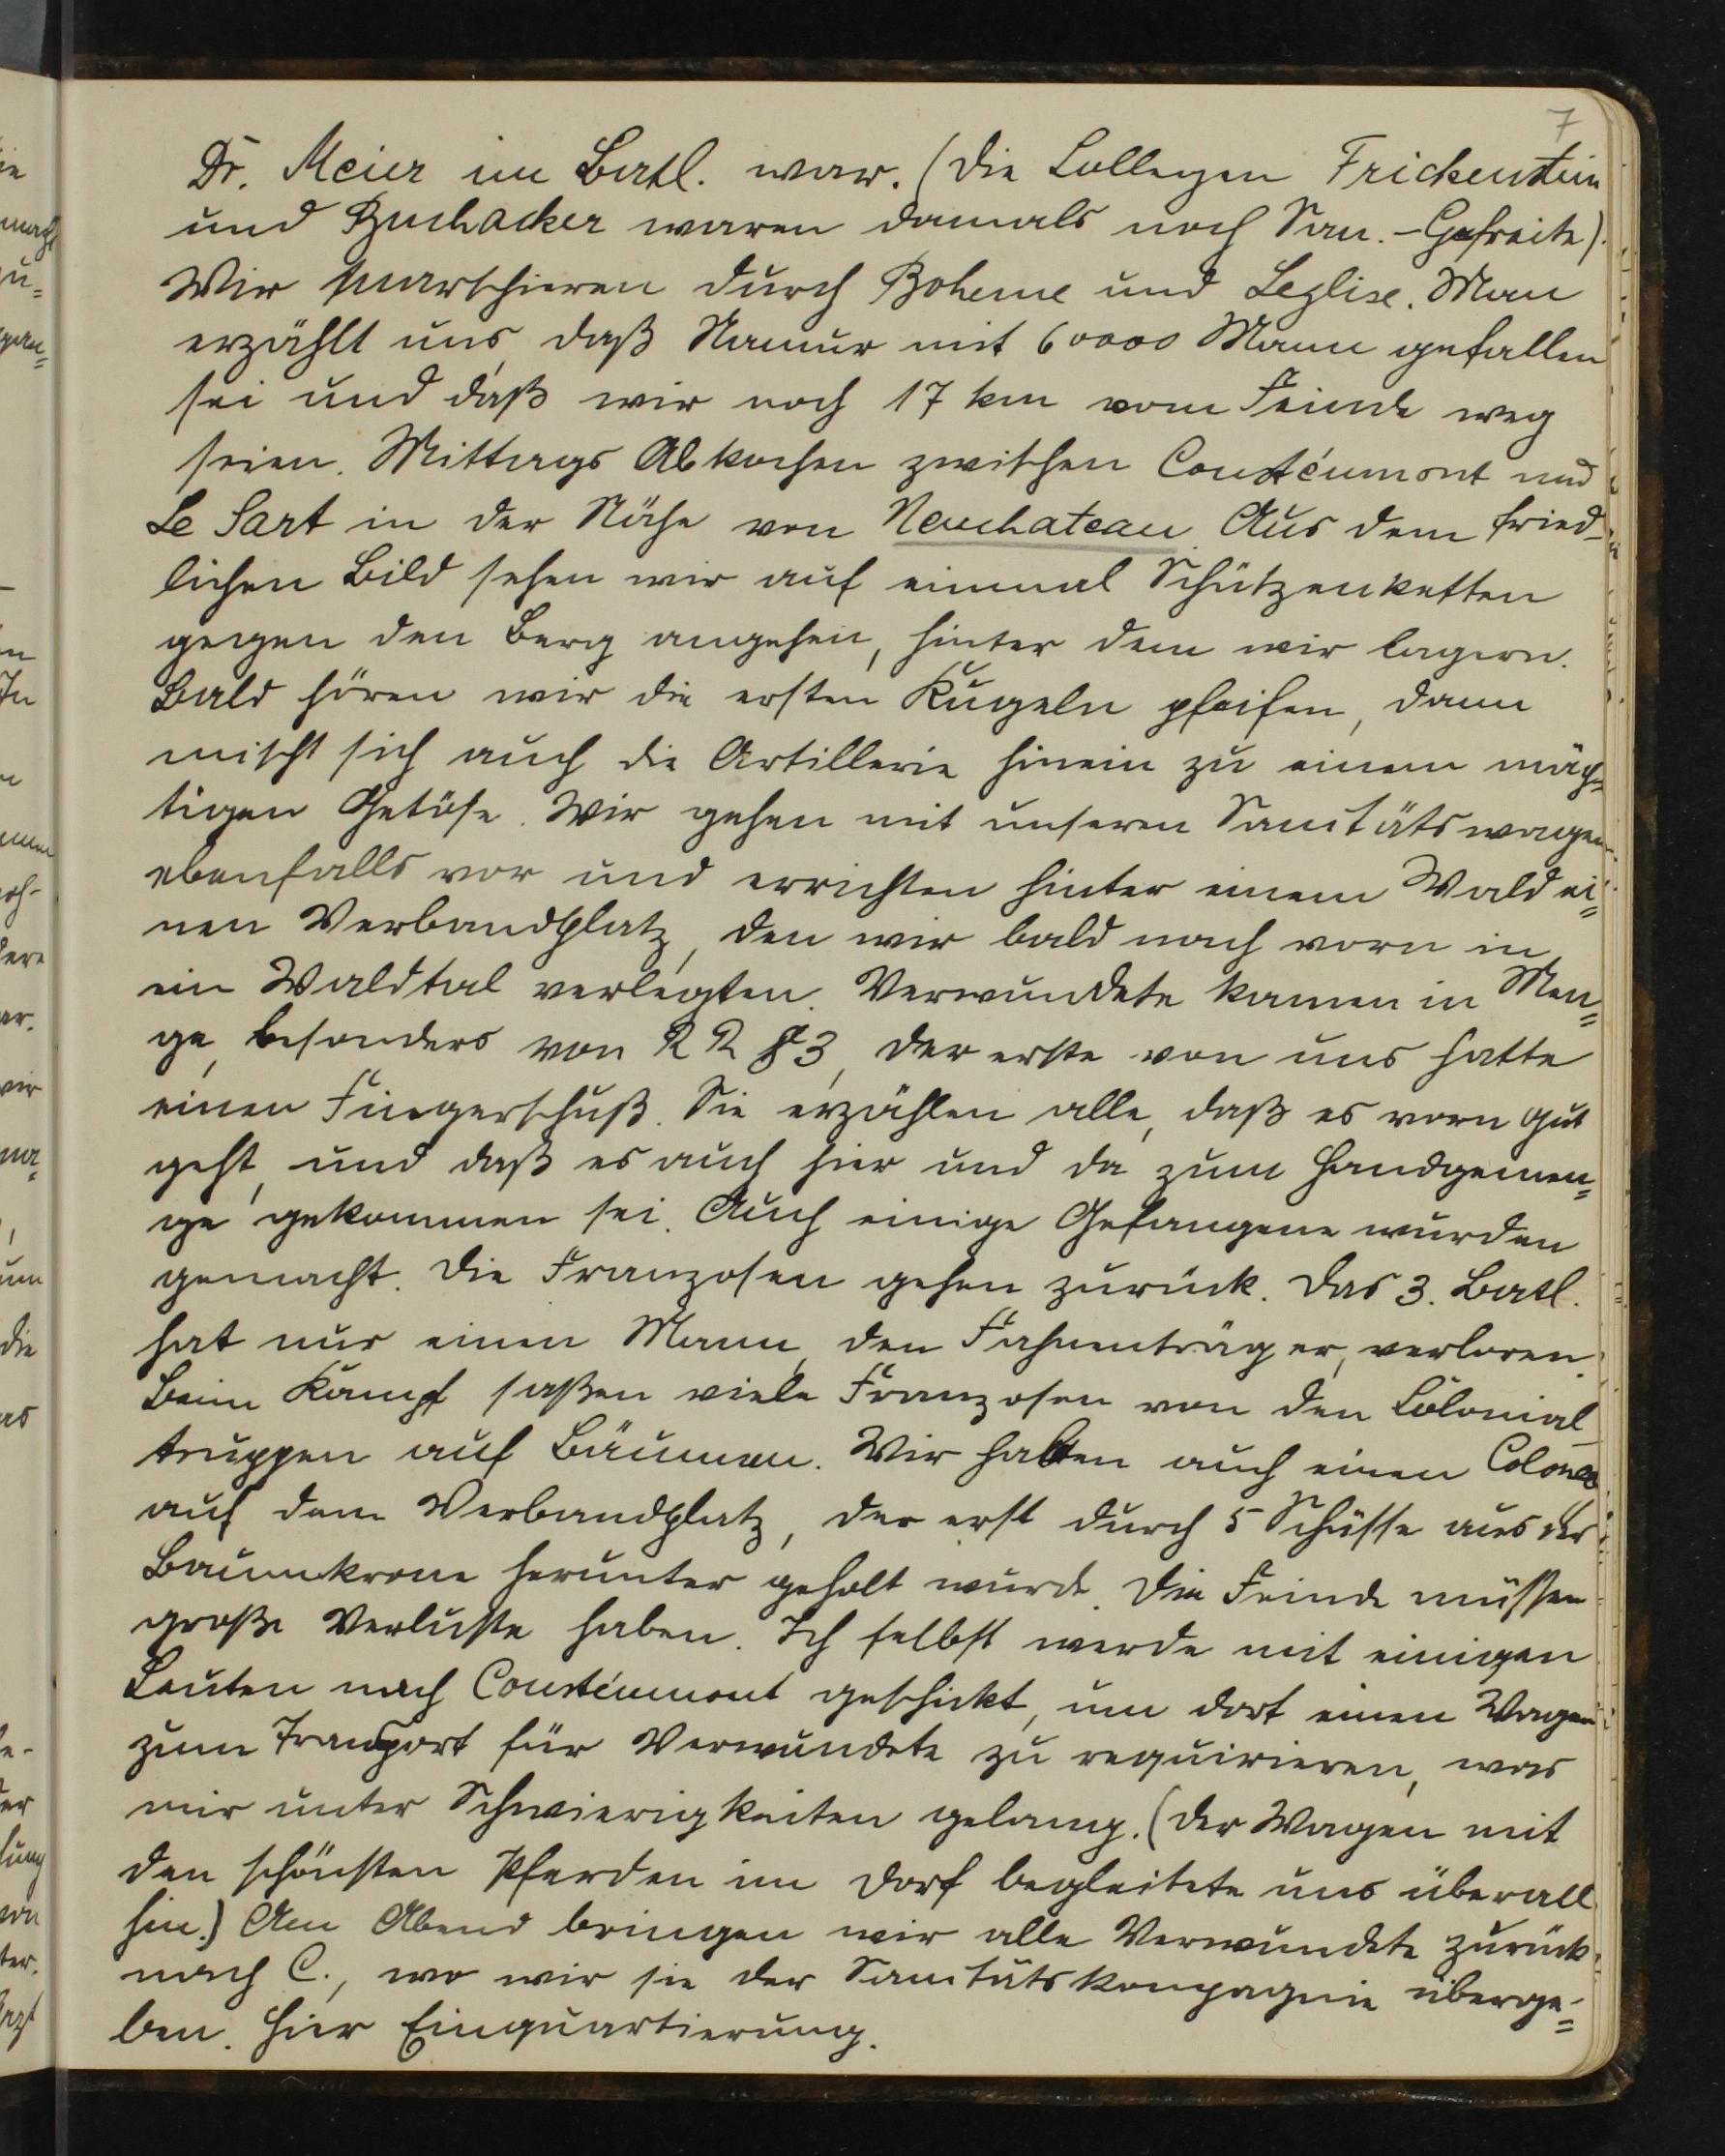 7
Dr. Meier im Batl. war. (Die Collegen Frickenstein
und Buchacker waren damals noch San.-Gefreite).
Wir marschieren durch Boheme und Leglise. Man
erzählt uns, daß Namur mit 60000 Mann gefallen
sei und daß wir noch 17 km vom Feinde weg
seien. Mittags Abkochen zwischen Constéumont und
Le Sart in der Nähe von Neuchateau. Aus dem fried-
lichen Bild sehen wir auf einmal Schützenketten
gegen den Berg angehen, hinter dem wir lagern.
Bald hören wir die ersten Kugeln pfeifen, dann
mischt sich auch die Artillerie hinein zu einem mäch=
tigen Getöse. Wir gehen mit unseren Sanitätswagen
ebenfalls vor und errichten hinter einem Wald ei=
nen Verbandplatz, den wir bald nach vorn in
ein Waldtal verlegten. Verwundete kamen in Men=
ge, besonders von R R 83, der erste von uns hatte
einen Fingerschuß. Sie erzählen alle, daß es vorn gut
geht, und daß es auch hier und da zum Handgemen=
ge gekommen sei. Auch einige Gefangene wurden
gemacht. Die Franzosen gehen zurück. Das 3. Batl.
hat nur einen Mann, den Fahnenträger, verloren.
Beim Kampf saßen viele Franzosen von den Colonial-
truppen auf Bäumen. Wir hatten auch einen
auf dem Verbandplatz, der erst durch 5 Schüsse aus der
Baumkrone herunter geholt wurde. Die Feinde müssen
große Verluste haben. Ich selbst werde mit einigen
Leuten nach Constéumont geschickt, um dort einen Wagen
zum Transport für Verwundete zu requirieren, was
mir unter Schwierigkeiten gelang. (Der Wagen mit
den schönsten Pferden im Dorf begleitete uns überall
hin.) Am Abend bringen wir alle Verwundete zurück
nach C., wo wir sie der Sanitätskompagnie überge=
ben. Hier Einquartierung.